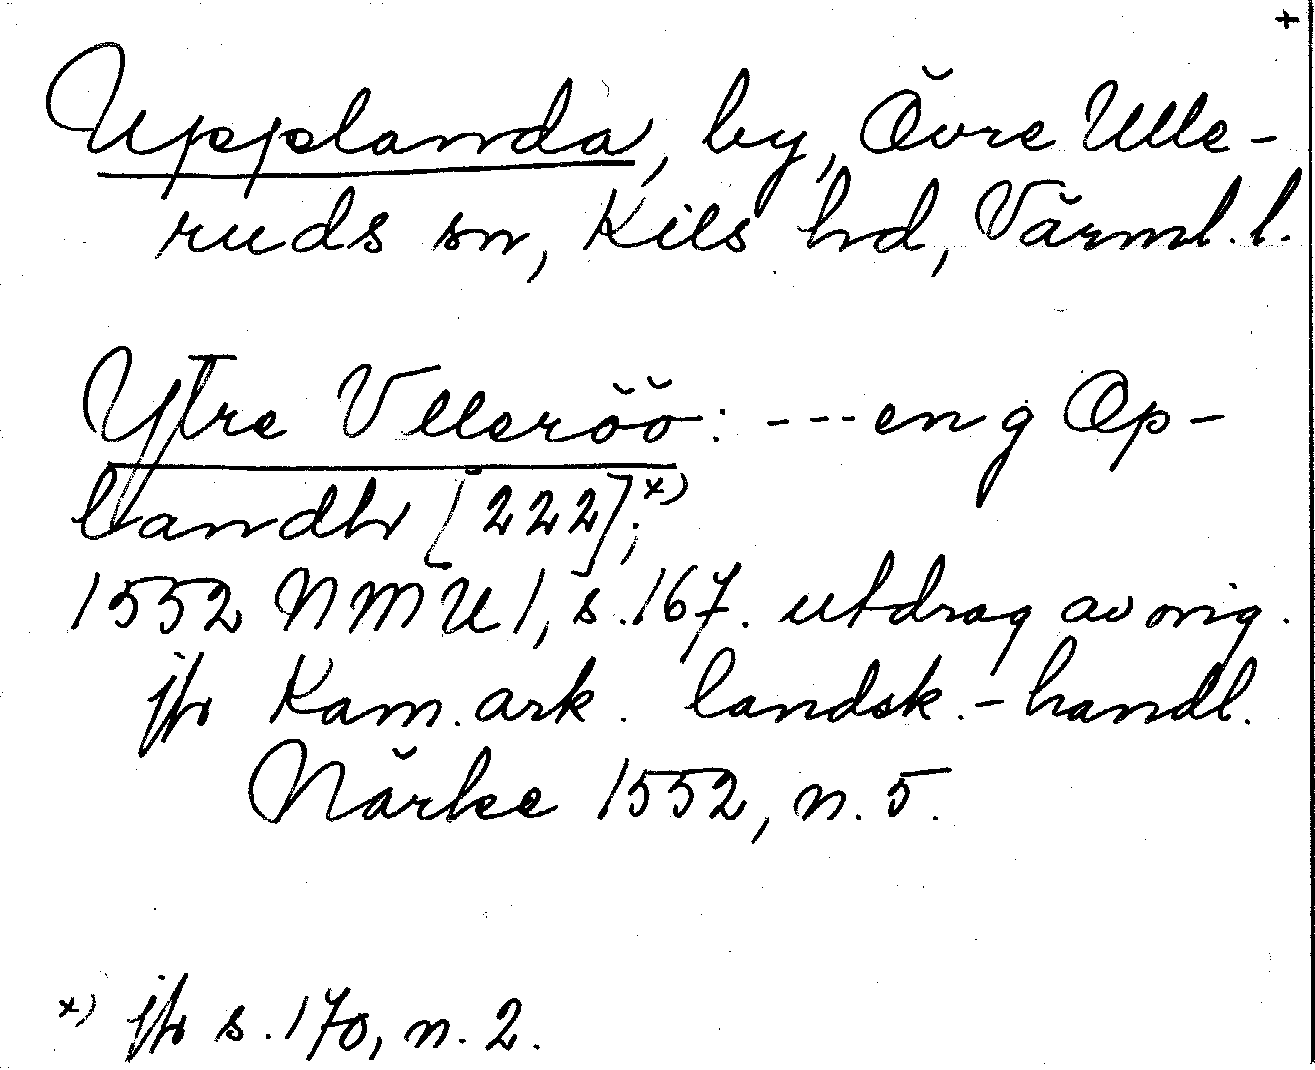 +
Upplanda, by, Övre Ulle-
ruds sn, Kils hd, Värml. l.
Ytre Vlleröö: --- en g Op-
landh [222];x)
1552 NMU 1, s. 167. utdrag av orig.
jfr Kam. ark. landsk.-handl.
Närke 1552, n. 5.
x) jfr s. 170, n. 2.